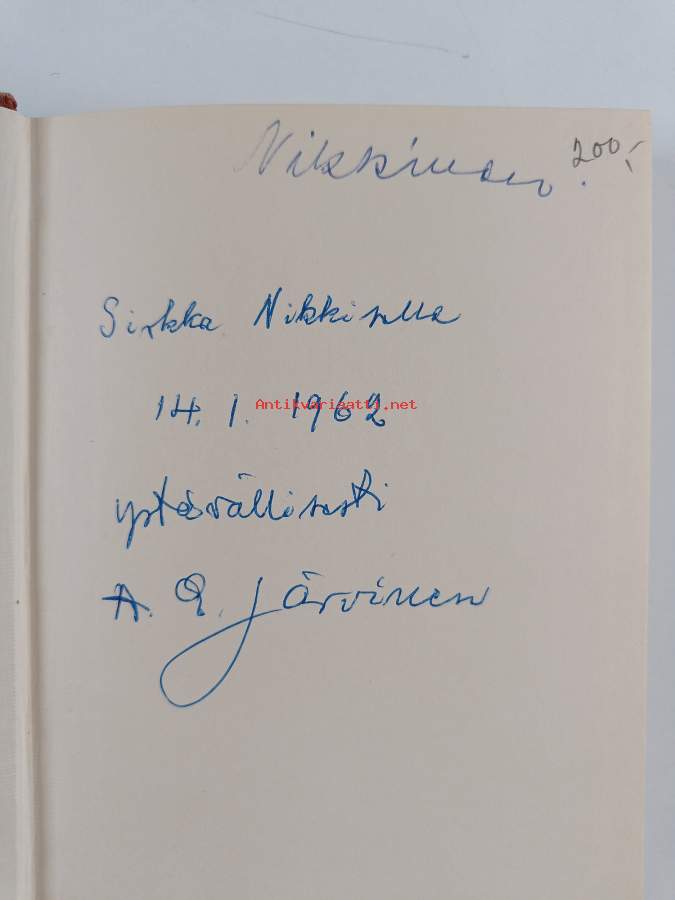 Nikkinen.
200,-
Sirkka Nikkiselle
14.1.1962
Antikvariaatti.net
ystävällisesti
A. E. Järvinen